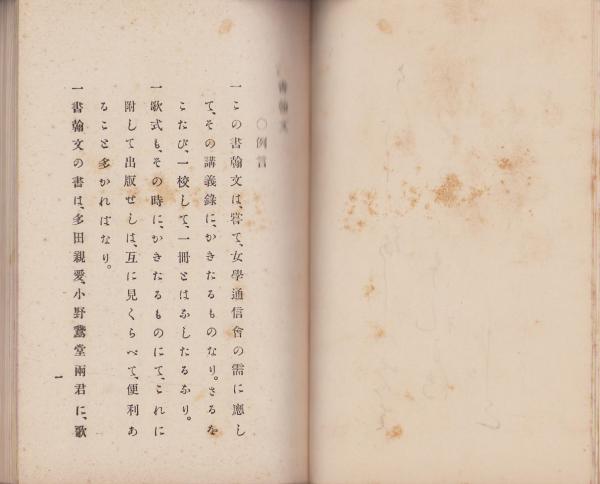 書翰文
〇例言
一この書翰文は、嘗て、女學通信會の需に應し
て、その講義錄に、かきたるものなり。さるを
こたび、一校して、一冊とはなしたるなり。
一歌式も、その時に、かきたるものにて、これに
附して出版せしは、互に見くらべて、便利あ
ること多かればなり。
一書翰文の書は、多田親愛、小野鵞堂兩君に、歌
一